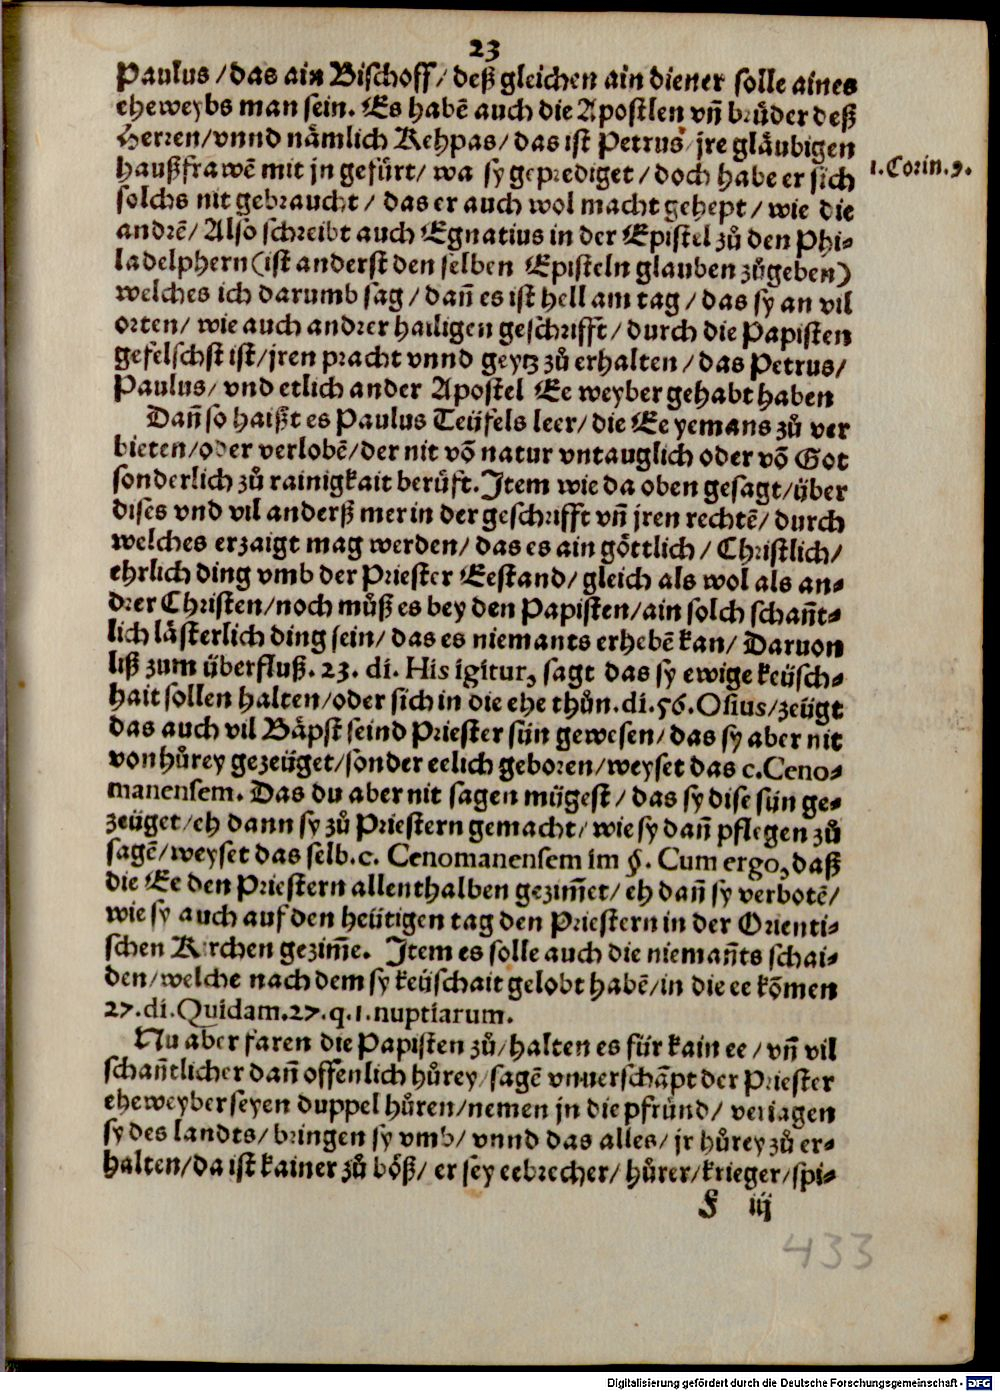 23
Paulus / das ain Bischoff / deß gleichen ain diener solle aines
eheweybs man sein. Es habẽ auch die Apostlen vñ brůder deß
Herren / vnnd nämlich Kehpas / das ist Petrus / jre gläubigen
haußfrawẽ mit jn gefürt / wa sy geprediget / doch habe er sich
1. Corin. 9.
solchs nit gebraucht / das er auch wol macht gehept / wie die
andrẽ / Also schreibt auch Egnatius in der Epistel zů den Phi-
ladelphern (ist anderst den selben Episteln glauben zůgeben)
welches ich darumb sag / dañ es ist hell am tag / das sy an vil
orten / wie auch andrer hailigen geschrifft / durch die Papisten
gefelschst ist / jren pracht vnnd geytz zů erhalten / das Petrus /
Paulus / vnd etlich ander Apostel Ee weyber gehabt haben
Dañ so haißt es Paulus Teüfels leer / die Ee yemans zů ver
bieten / oder verlobẽ / der nit võ natur vntauglich oder võ Got
sonderlich zů rainigkait berüft. Item wie da oben gesagt / über
dises vnd vil anderß mer in der geschrifft vñ jren rechtẽ / durch
welches erzaigt mag werden / das es ain göttlich / Christlich /
ehrlich ding vmb der Priester Eestand / gleich als wol als an-
drer Christen / noch můß es bey den Papisten / ain solch schañt-
lich lästerlich ding sein / das es niemants erhebẽ kan / Daruon
liß zum überfluß. 23. di. His igitur, sagt das sy ewige keüsch-
hait sollen halten / oder sich in die ehe thůn. di. 56. Osius / zeügt
das auch vil Bäpst seind Priester sün gewesen / das sy aber nit
von hůrey gezeüget / sonder eelich geboren / weyset das c. Ceno-
manensem. Das du aber nit sagen mügest / das sy dise sün ge-
zeüget / eh dann sy zů Priestern gemacht / wie sy dañ pflegen zů
sagẽ / weyset das selb. c. Cenomanensem im §. Cum ergo, daß
die Ee den Priestern allenthalben gezim̃et / eh dañ sy verbotẽ /
wie sy auch auf den heütigen tag den Priestern in der Orienti-
schen Kirchen gezim̃e. Item es solle auch die niemañts schai-
den / welche nach dem sy keüschait gelobt habẽ / in die ee kõmen
27. di. Quidam. 27. q. 1. nuptiarum.
Nu aber faren die Papisten zů / halten es für kain ee / vñ vil
schañtlicher dañ offenlich hůrey / sagẽ vnuerschãpt der Priester
eheweyber seyen duppel hůren / nemen jn die pfründ / veriagen
sy des landts / bringen sy vmb / vnnd das alles / jr hůrey zů er-
halten / da ist kainer zů böß / er sey eebrecher / hůrer / krieger / spi-
F iij
433
Digitalisierung gefördert durch die Deutsche Forschungsgemeinschaft - DFG